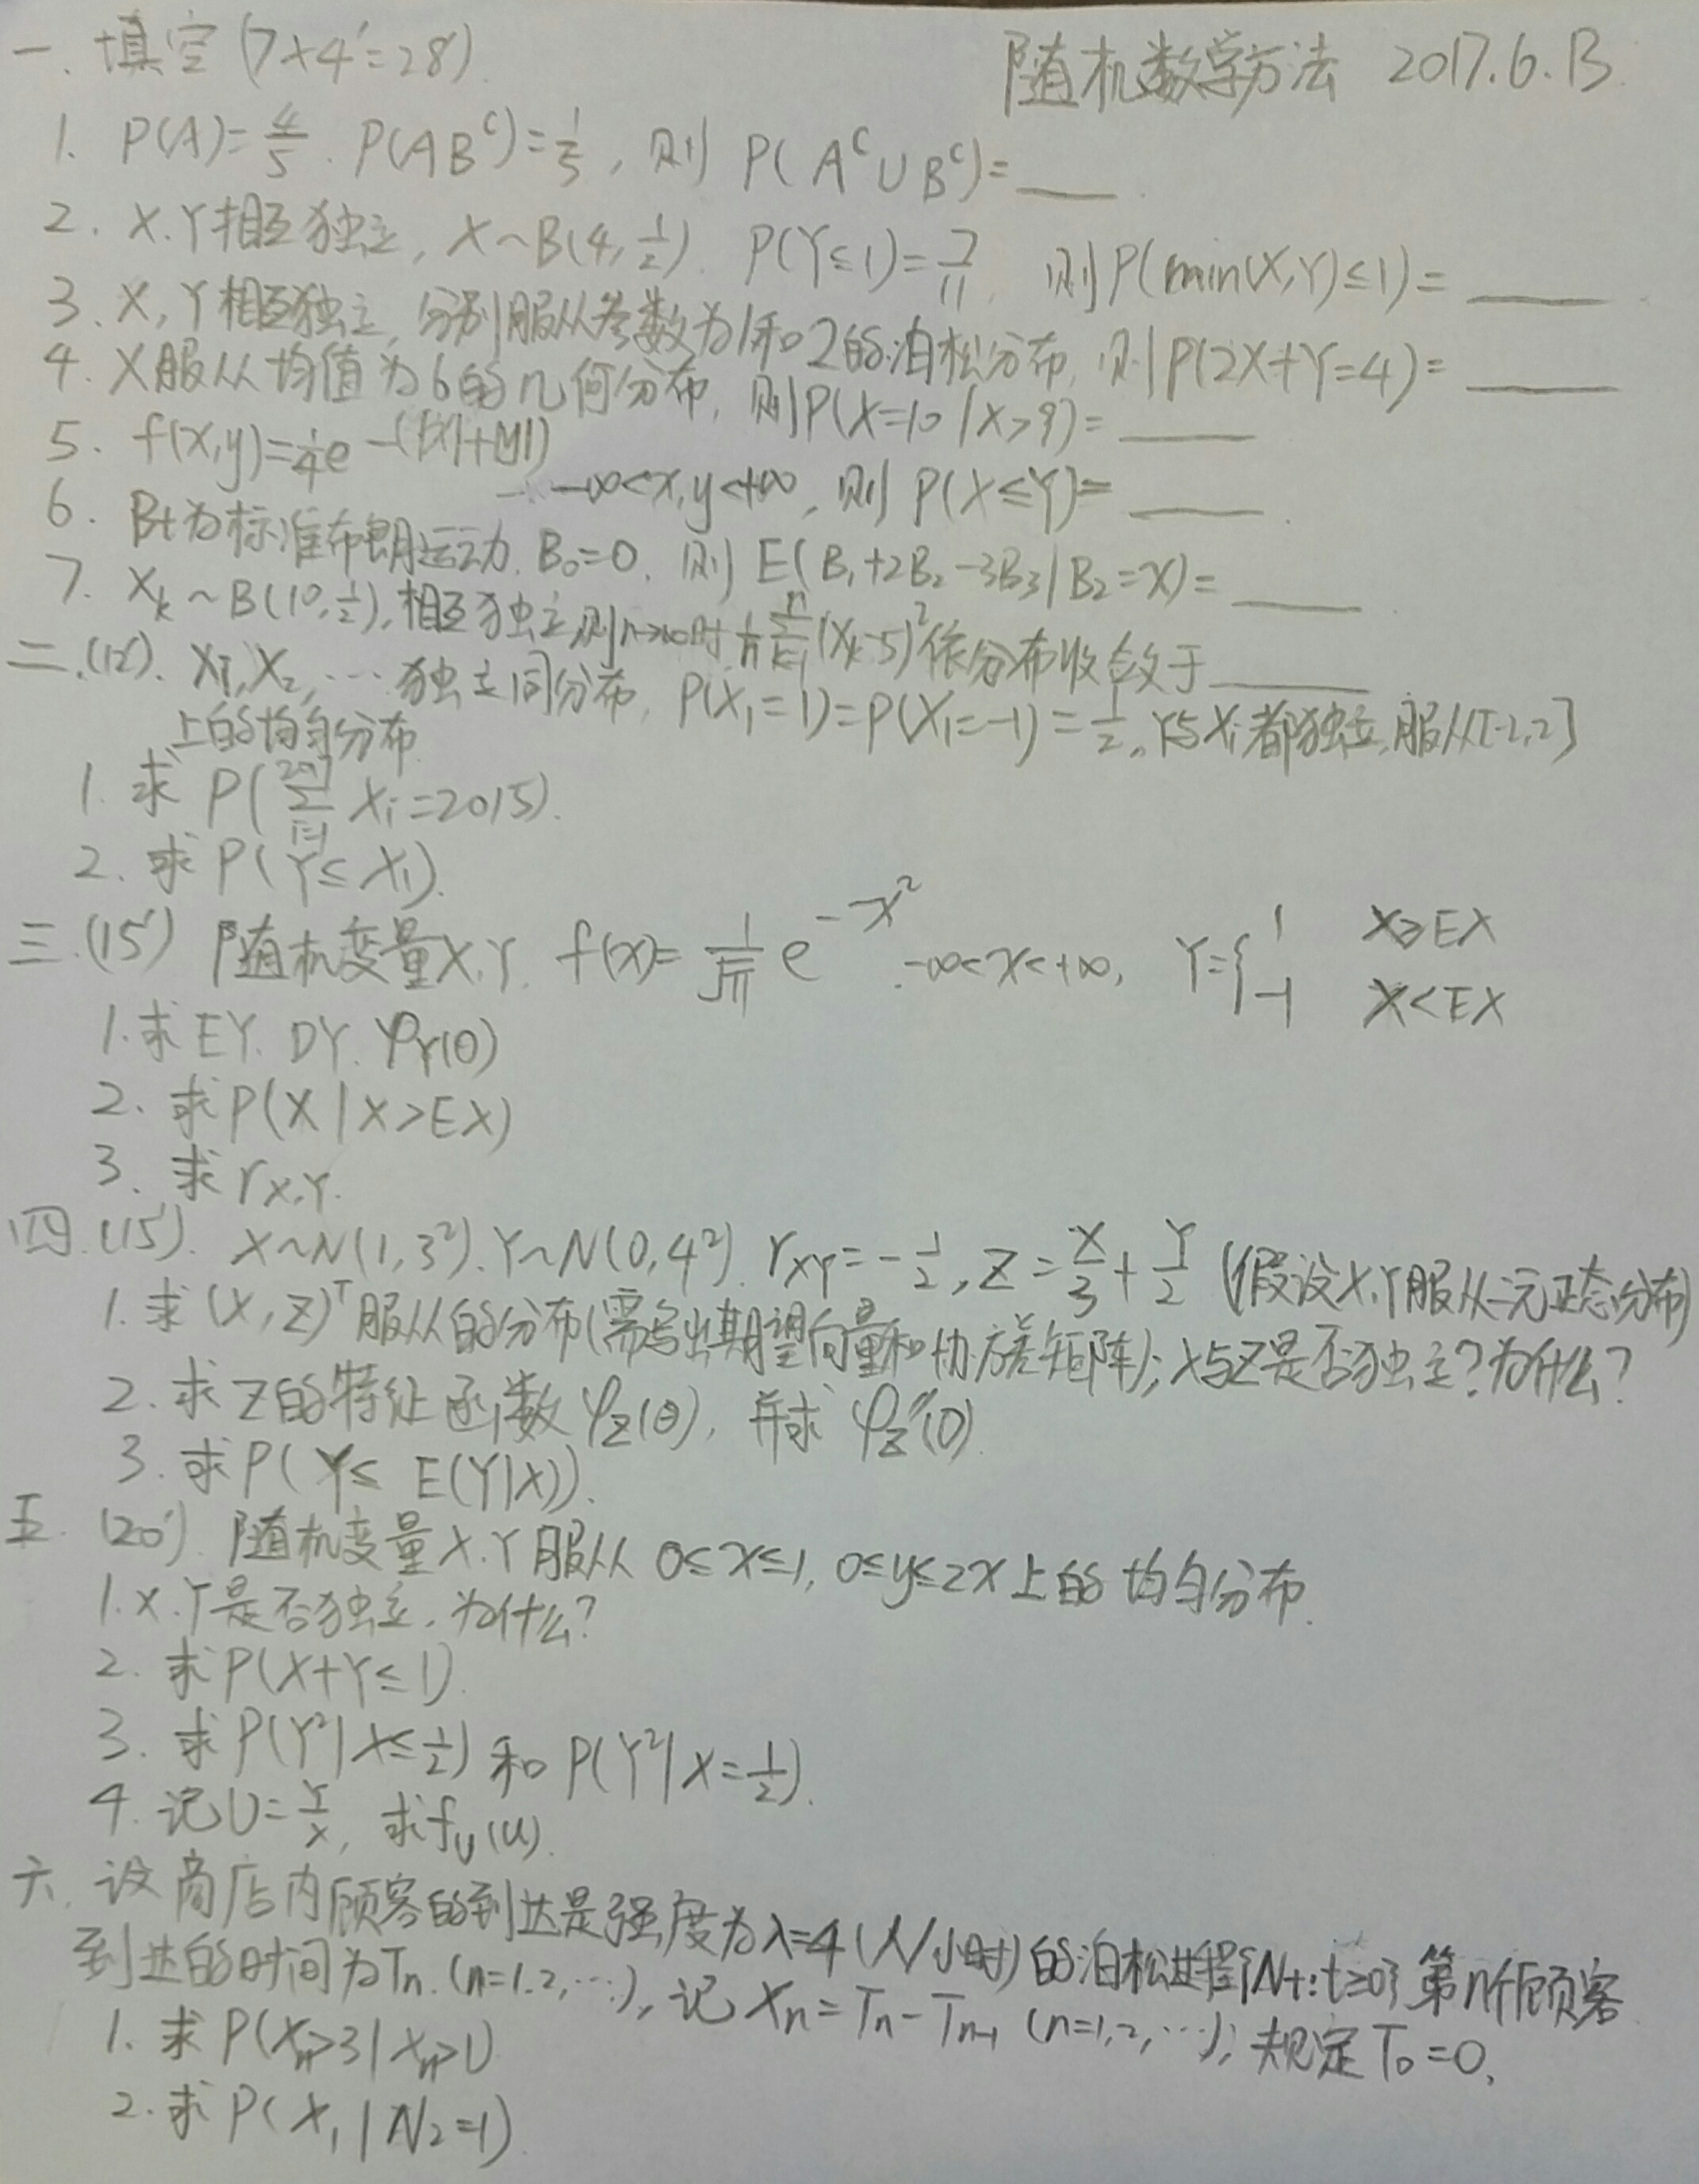 随机数学方法 2017.6.B
一. 填空 (7×4'=28').
1. P(A)=4/5. P(AB^c)=1/5, 则 P(A^c∪B^c)=____.
2. X.Y相互独立, X~B(4,1/2). P(Y≤1)=7/11, 则P(min(X,Y)≤1)=____
3. X,Y相互独立, 分别服从参数为1和2的泊松分布, 则P(2X+Y=4)=____
4. X服从均值为6的几何分布, 则P(X=10|X>9)=____
5. f(x,y)=1/4 e^-(|x|+|y|) -∞<x,y<+∞, 则 P(X≤Y)=____.
6. Bt为标准布朗运动. B₀=0. 则 E(B₁+2B₂-3B₃|B₂=x)=____.
7. X_k~B(10,1/2), 相互独立,则n→∞时 1/n Σ_{k=1}^n (X_k-5)² 依分布收敛于____
二.(12'). X₁,X₂,… 独立同分布, P(X₁=1)=P(X₁=-1)=1/2, Y与X_i都独立,服从[-2,2]
上的均匀分布
1. 求 P(Σ_{i=1}^{2017} X_i=2015).
2. 求 P(Y≤X₁).
三.(15') 随机变量X.Y. f(x)=1/√π e^{-x²} -∞<x<+∞, Y={1 X≥EX
-1 X<EX
1.求EY. DY. φ_Y(θ)
2. 求P(X|X>EX)
3. 求 r_{X,Y}.
四.(15'). X~N(1,3²). Y~N(0,4²). r_{XY}=-1/2, Z=X/3+Y/2 (假设X,Y服从二元正态分布)
1.求(X,Z)^T服从的分布(需写出期望向量和协方差矩阵); X与Z是否独立?为什么?
2. 求Z的特征函数φ_Z(θ), 并求 φ_Z''(0).
3. 求P(Y≤ E(Y|X)).
五. (20'). 随机变量X.Y服从 0≤x≤1, 0≤y≤2x上的均匀分布.
1.X.Y是否独立. 为什么?
2. 求P(X+Y≤1).
3. 求P(Y²|X≤1/2) 和 P(Y²|X=1/2).
4. 记U=Y/X, 求f_U(u).
六. 设商店内顾客的到达是强度为λ=4(人/小时)的泊松进程{N_t:t≥0} 第n个顾客
到达的时间为Tn. (n=1.2,…), 记 Xn=Tn-Tn-1 (n=1,2,…); 规定T₀=0.
1. 求 P(Xn>3|Xn>1)
2. 求 P(X₁|N₂=1).